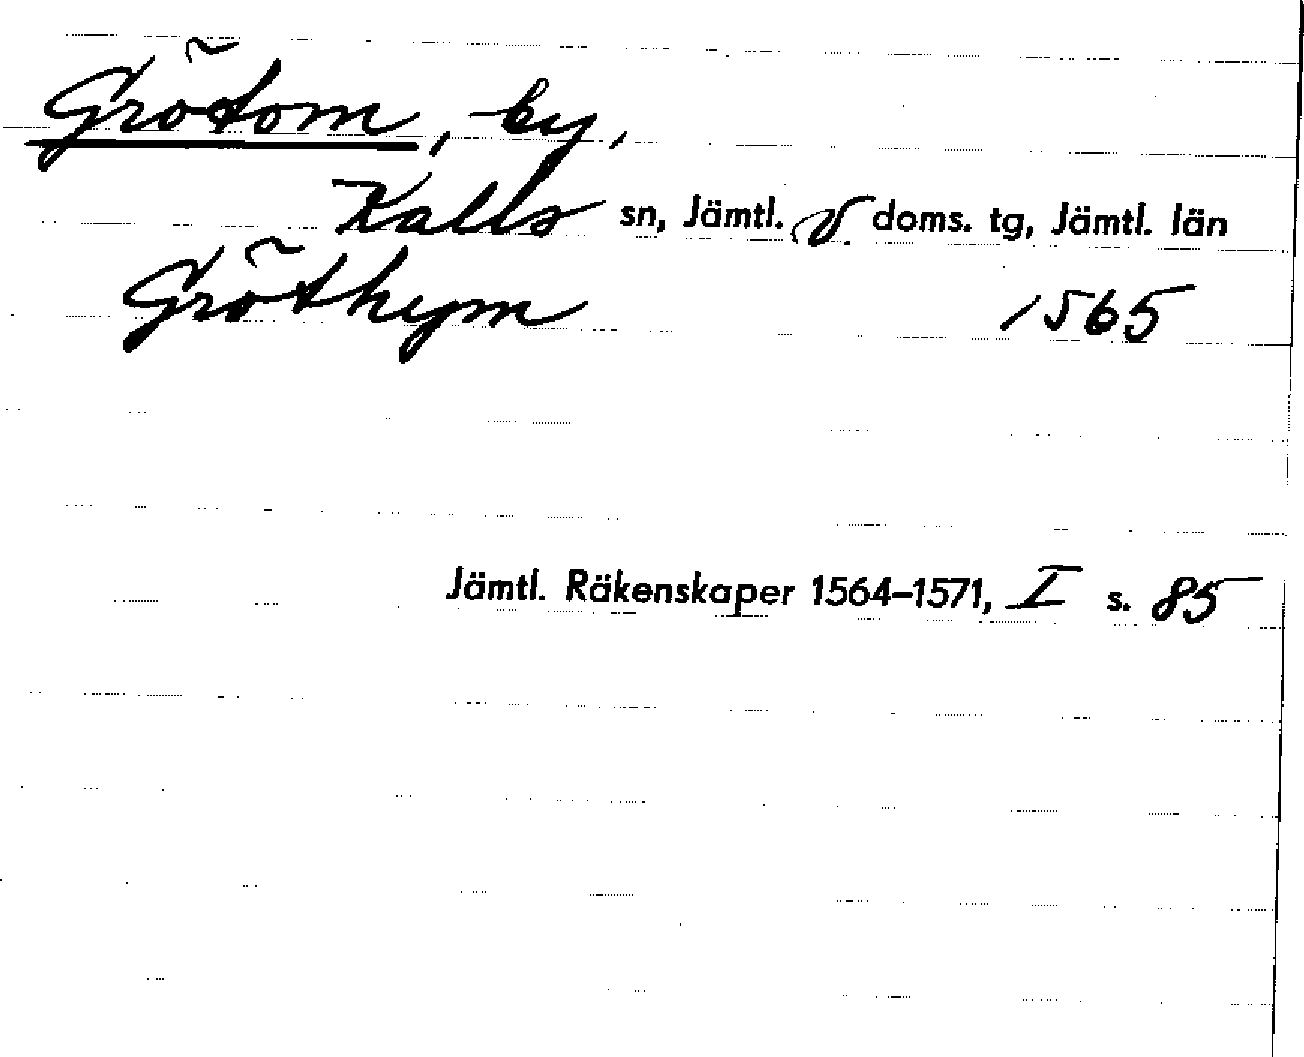 Grötom, by,
Kalls sn, Jämtl. v. doms. tg, Jämtl. län
Gröthym 1565
Jämtl. Räkenskaper 1564–1571, I s. 85